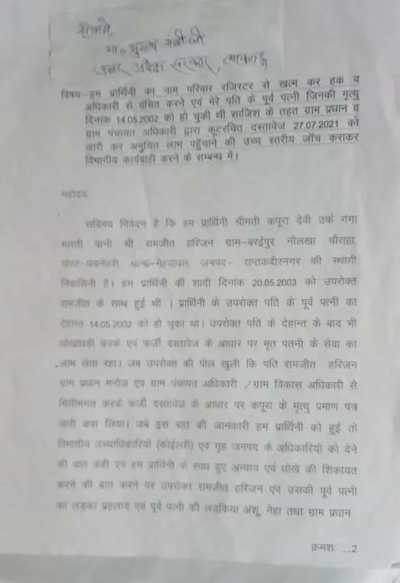 सेवामें,
मा० मुख्य मंत्री जी
उत्तर प्रदेश सरकार, लखनऊ
विषय:-हम प्रार्थिनी का नाम परिवार रजिस्टर से खत्म कर हक व
अधिकार से वंचित करने एवं मेरे पति के पूर्व पत्नी जिनकी मृत्यु
दिनांक 14.05.2002 को हो चुकी थी साजिश के तहत ग्राम प्रधान व
ग्राम पंचायत अधिकारी द्वारा कूटरचित दस्तावेज 27.07.2021 को
जारी कर अनुचित लाभ पहुँचाने की उच्च स्तरीय जाँच कराकर
विभागीय कार्यवाही करने के सम्बन्ध में।
महोदय,
सविनय निवेदन है कि हम प्रार्थिनी श्रीमती कपूरा देवी उर्फ गंगा
भारती पत्नी श्री रामजीत हरिजन ग्राम-बरईपुर नोलखा चौराहा,
पोस्ट- थाना-मेंहदावल, जनपद- सन्तकबीरनगर की स्थायी
निवासिनी है। हम प्रार्थिनी की शादी दिनांक 20.05.2003 को उपरोक्त
रामजीत के साथ हुई थी । प्रार्थिनी के उपरोक्त पति के पूर्व पत्नी का
देहान्त 14.05.2002 को हो चुका था। उपरोक्त पति के देहान्त के बाद भी
धोखाधड़ी करके एवं फर्जी दस्तावेज के आधार पर मृत पत्नी के सेवा का
लाभ लेता रहा। जब उपरोक्त की पोल खुली कि पति रामजीत हरिजन
ग्राम प्रधान मनोज एवं ग्राम पंचायत अधिकारी / ग्राम विकास अधिकारी से
मिलीभगत करके फर्जी दस्तावेज के आधार पर कपूरा के मृत्यु प्रमाण पत्र
जारी करा लिया। जब इस बात की जानकारी हम प्रार्थिनी को हुई तो
विभागीय उच्चाधिकारियों एवं गृह जनपद के अधिकारियों को देने
की बात कही एवं हम प्रार्थिनी के साथ हुए अन्याय एवं धोखे की शिकायत
करने की बात करने पर उपरोक्त रामजीत हरिजन एवं उसकी पूर्व पत्नी
का लड़का प्रहलाद एवं पूर्व पत्नी की लड़किया अंशू, नेहा तथा ग्राम प्रधान
क्रमशः ...2